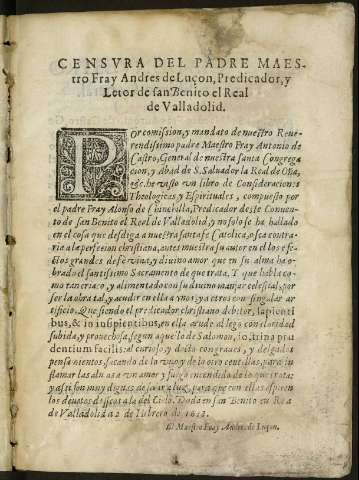 CENSVRA DEL PADRE MAES-
tro Fray Andres de Luçon, Predicador, y
Letor de san Benito el Real
de Valladolid.
POr comission, y mandato de nuestro Reue-
rendissimo padre Maestro Fray Antonio de
Castro, General de nuestra santa Congrega
cion, y Abad de S. Saluador la Real de Oña,
&c. he visto vn libro de Consideraciones
Theologicas y Espirituales, compuesto por
el padre Fray Alonso de Chinchilla, Predicador deste Conuen-
to de san Benito el Real de Valladolid, y no solo se ha hallado
en el cosa que desdiga a nuestra santa fe Catolica, o sea contra-
ria a la perfecion christiana, antes muestra su autor en el los efe-
ctos grandes de fe viua, y diuino amor que en su alma ha o-
brado el santissimo Sacramento de que trata, Y que habla co-
mo tan criado, y alimentado con su diuino manjar celestial, por
ser la obra tal, y acudir en ella a vnos, y a otros con singular ar
tificio. Que siendo el predicador christiano debitor, sapienti
bus, & insipientibus, en ella acude al lego con claridad
subida, y prouechosa, segun aquello de Salomon,
dentium facilis; al curioso, y docto con graues, y delgados
pensamientos, sacando de lo vno, y de lo otro centellas, para in
flamar las almas a vn amor y fuego encendido de lo que trata:
y assi son muy dignas de sacar a luz, para que con ellas
los deuotos al Cielo. Dada en san Benito en Real
de Valladolid a 2 de Febrero de 1612.
El Maestro Fray Andres de Luçon.